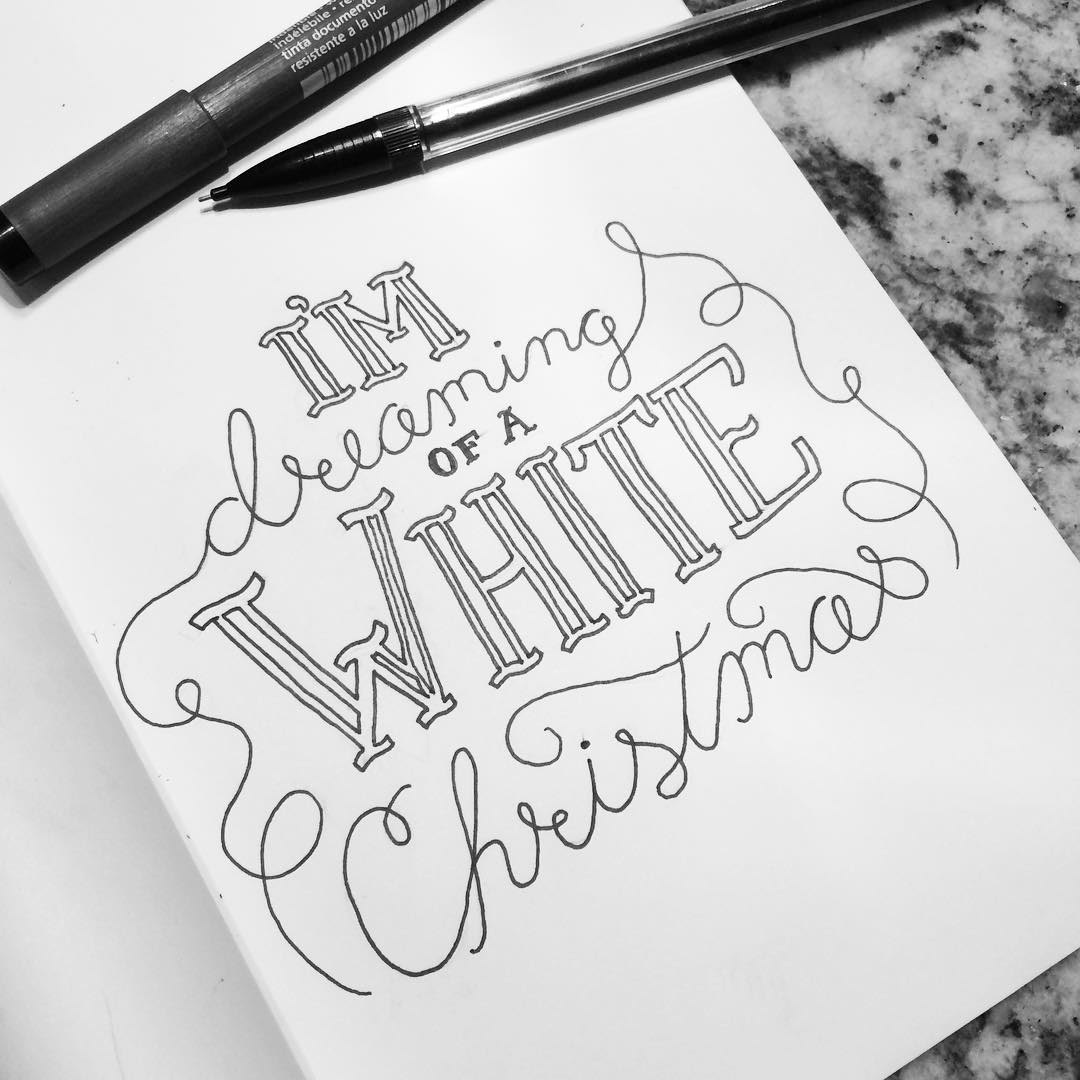 indélébile • re
tinta documento
resistente a la luz
I'M
dreaming
OF A
WHITE
Christmas